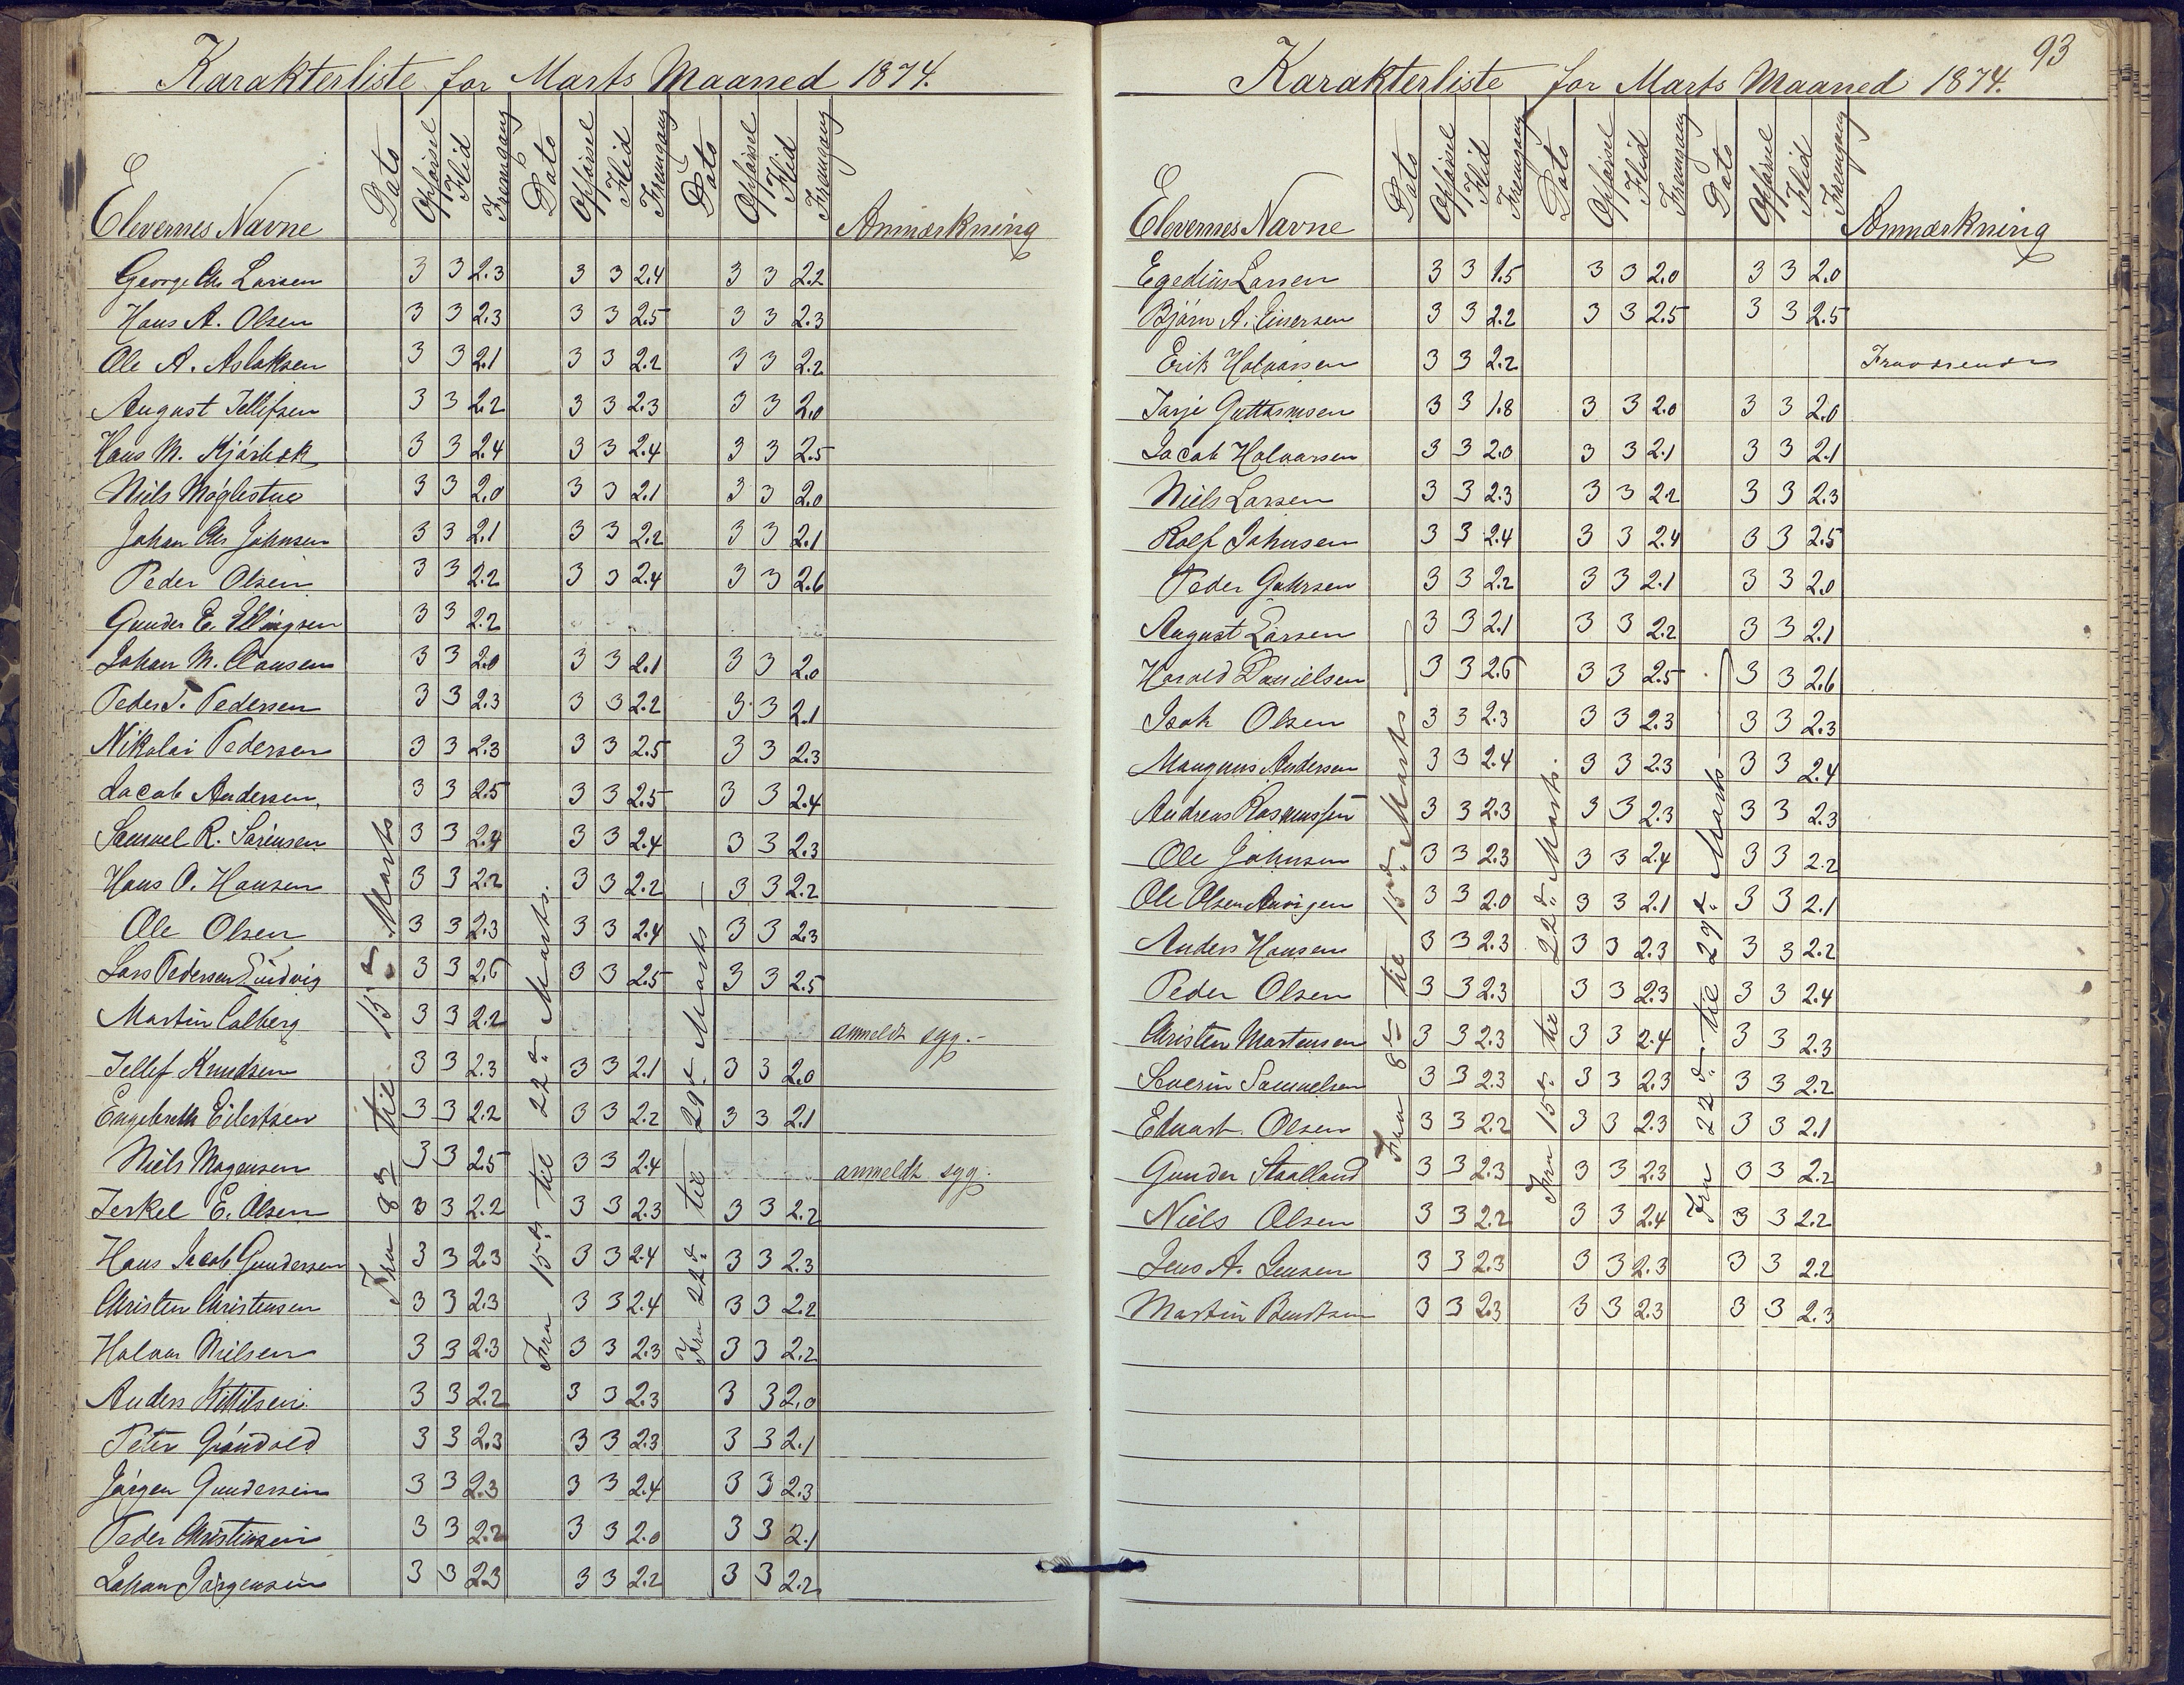 Karakterliste for Marts Maaned 1874.
Elevernes Navne Dato Opførsel Flid Fremgang Dato Opførsel Flid Fremgang Dato Opførsel Flid Fremgang Anmærkning
Fra 8de til 15de Marts
Fra 15de til 22de Marts.
Fra 22de til 29de Marts
George Chr Larsen 3 3 2.3 3 3 2.4 3 3 2.2
Hans A. Olsen 3 3 2.3 3 3 2.5 3 3 2.3
Ole A. Aslaksen 3 3 2.1 3 3 2.2 3 3 2.2
August Tellefsen 3 3 2.2 3 3 2.3 3 3 2.0
Hans M. Kjørbek 3 3 2.4 3 3 2.4 3 3 2.5
Niels Møglestue 3 3 2.0 3 3 2.1 3 3 2.0
Johan Chr Johnsen 3 3 2.1 3 3 2.2 3 3 2.1
Peder Olsen 3 3 2.2 3 3 2.4 3 3 2.6
Gunder E. Ellingsen 3 3 2.2
Johan M. Clausen 3 3 2.0 3 3 2.1 3 3 2.0
Peder T. Pedersen 3 3 2.3 3 3 2.2 3 3 2.1
Nikolai Pedersen 3 3 2.3 3 3 2.5 3 3 2.3
Jacob Andersen 3 3 2.5 3 3 2.5 3 3 2.4
Samuel R. Sørensen 3 3 2.4 3 3 2.4 3 3 2.3
Hans O. Hansen 3 3 2.2 3 3 2.2 3 3 2.2
Ole Olsen 3 3 2.3 3 3 2.4 3 3 2.3
Lars Pedersen Lindvig 3 3 2.6 3 3 2.5 3 3 2.5
Martin Calberg 3 3 2.2 anmeldt syg.-
Tellef Knudsen 3 3 2.3 3 3 2.1 3 3 2.0
Engebreth Eilertsen 3 3 2.2 3 3 2.2 3 3 2.1
Niels Mogensen 3 3 2.5 3 3 2.4 anmeldt syg.
Terkel E. Olsen 3 3 2.2 3 3 2.3 3 3 2.2
Hans Jacob Gundersen 3 3 2.3 3 3 2.4 3 3 2.3
Christen Christensen 3 3 2.3 3 3 2.4 3 3 2.2
Halvor Nielsen 3 3 2.3 3 3 2.3 3 3 2.2
Anders Kittilsen 3 3 2.2 3 3 2.3 3 3 2.0
Peter Grøndold 3 3 2.3 3 3 2.3 3 3 2.1
Jørgen Gundersen 3 3 2.3 3 3 2.4 3 3 2.3
Peder Christensen 3 3 2.2 3 3 2.0 3 3 2.1
Johan Jørgensen 3 3 2.3 3 3 2.2 3 3 2.2
93
Karakterliste for Marts Maaned 1874.
Elevernes Navne Dato Opførsel Flid Fremgang Dato Opførsel Flid Fremgang Dato Opførsel Flid Fremgang Anmærkning
Fra 8de til 15de Marts
Fra 15de til 22de Marts.
Fra 22de til 29de Marts
Egedius Larsen 3 3 1.5 3 3 2.0 3 3 2.0
Bjørn A. Einersen 3 3 2.2 3 3 2.5 3 3 2.5
Erik Halvorsen 3 3 2.2 Fraværende
Tarje Guttormsen 3 3 1.8 3 3 2.0 3 3 2.0
Jacob Halvorsen 3 3 2.0 3 3 2.1 3 3 2.1
Niels Larsen 3 3 2.3 3 3 2.2 3 3 2.3
Rolf Johnsen 3 3 2.4 3 3 2.4 3 3 2.5
Peder Gahrsen 3 3 2.2 3 3 2.1 3 3 2.0
August Larsen 3 3 2.1 3 3 2.2 3 3 2.1
Harald Danielsen 3 3 2.6 3 3 2.5 3 3 2.6
Isak Olsen 3 3 2.3 3 3 2.3 3 3 2.3
Mangnus Andersen 3 3 2.4 3 3 2.3 3 3 2.4
Andreas Rasmussen 3 3 2.3 3 3 2.3 3 3 2.3
Ole Johnsen 3 3 2.3 3 3 2.4 3 3 2.2
Ole Olsen 3 3 2.0 3 3 2.1 3 3 2.1
Anders Hansen 3 3 2.3 3 3 2.3 3 3 2.2
Peder Olsen 3 3 2.3 3 3 2.3 3 3 2.4
Christen Mortensen 3 3 2.3 3 3 2.4 3 3 2.3
Severin Samuelsen 3 3 2.3 3 3 2.3 3 3 2.2
Eduart Olsen 3 3 2.2 3 3 2.3 3 3 2.1
Gunder Staalland 3 3 2.3 3 3 2.3 3 3 2.2
Niels Olsen 3 3 2.2 3 3 2.4 3 3 2.2
Jens A. Jensen 3 3 2.3 3 3 2.3 3 3 2.2
Martin Bendtsen 3 3 2.3 3 3 2.3 3 3 2.3